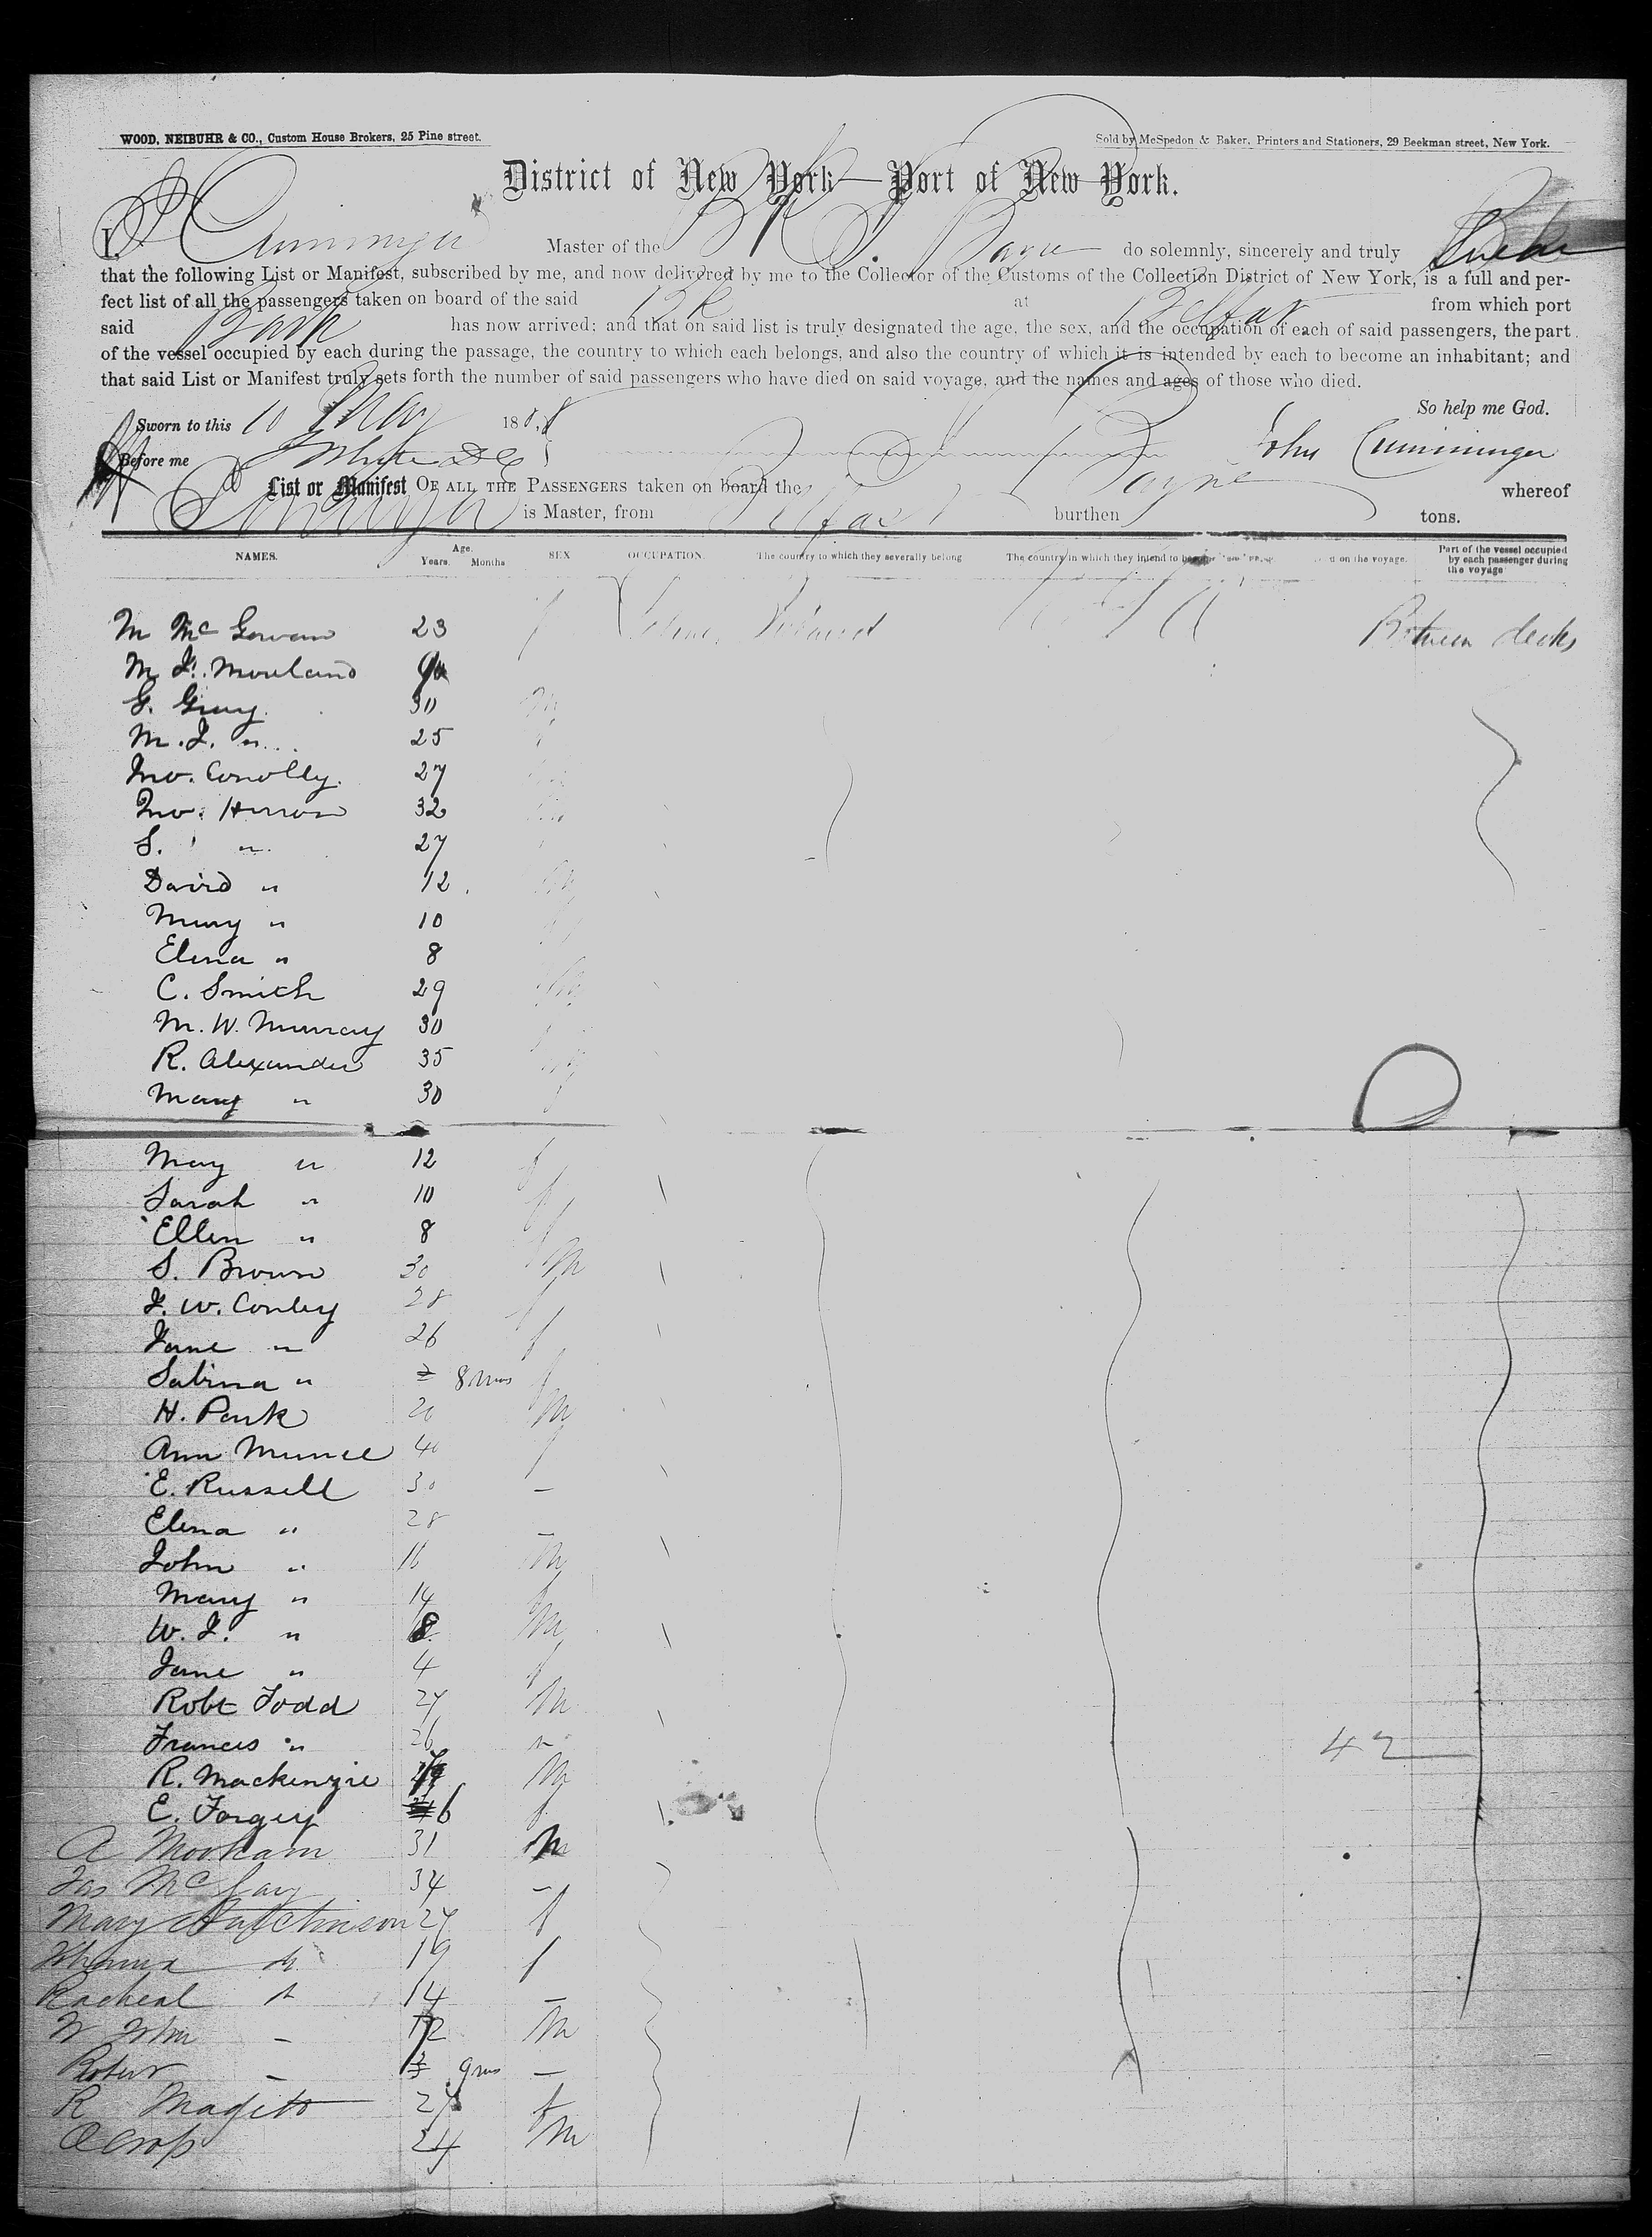 WOOD, NEIBUHR & CO., Custom House Brokers, 25 Pine street.
Sold by McSpedon & Baker, Printers and Stationers, 29 Beekman street, New York.
District of New York—Port of New York.
I, Master of the Bk do solemnly, sincerely and truly Swear
that the following List or Manifest, subscribed by me, and now delivered by me to the Collector of the Customs of the Collection District of New York, is a full and per-
fect list of all the passengers taken on board of the said Bk at Belfast from which port
said Bark has now arrived; and that on said list is truly designated the age, the sex, and the occupation of each of said passengers, the part
of the vessel occupied by each during the passage, the country to which each belongs, and also the country of which it is intended by each to become an inhabitant; and
that said List or Manifest truly sets forth the number of said passengers who have died on said voyage, and the names and ages of those who died.
So help me God.
Sworn to this 10 May 185
Before me White John Cumminger
List or Manifest OF ALL THE PASSENGERS taken on board the Payne whereof
is Master, from Belfast burthen tons.
NAMES. Age. Years. Months SEX OCCUPATION. The country to which they severally belong The country in which they intend to on the voyage. Part of the vessel occupied by each passenger during the voyage
M Mc Gowan 23 f Ireland Between decks
M J. Moreland
G. Gray 30 M
M. J. " 25
Jno. Conolly. 27
Jno. Herron 32
S. " 27
David " 12
Mary " 10
Elena " 8
C. Smith 29
M. W. Murray 30
R. Alexander 35
Mary " 30
May " 12 f
Sarah " 10 f
Ellen " 8 f
S. Brown 30 M
J. W. Conley 28 f
Jane " 26 f
Sabina " 8 mos f
H. Park 20 M
Ann Munce 40 f
E. Russell 30 –
Elena " 28 –
John " 16 M
Mary " 14 f
W. J. " 8 M
Jane " 4 f
Robt Todd 27 M
Frances " 26 "
42
R. Mackenzie M
E. Forgey 6 f
A Mookam 31 M
Jas Mc 34 –
Mary Hutchinson 27 f
" 19 f
Racheal " 14 –
W John – 12 M
Robert – 9 mos –
R 27 f
24 M